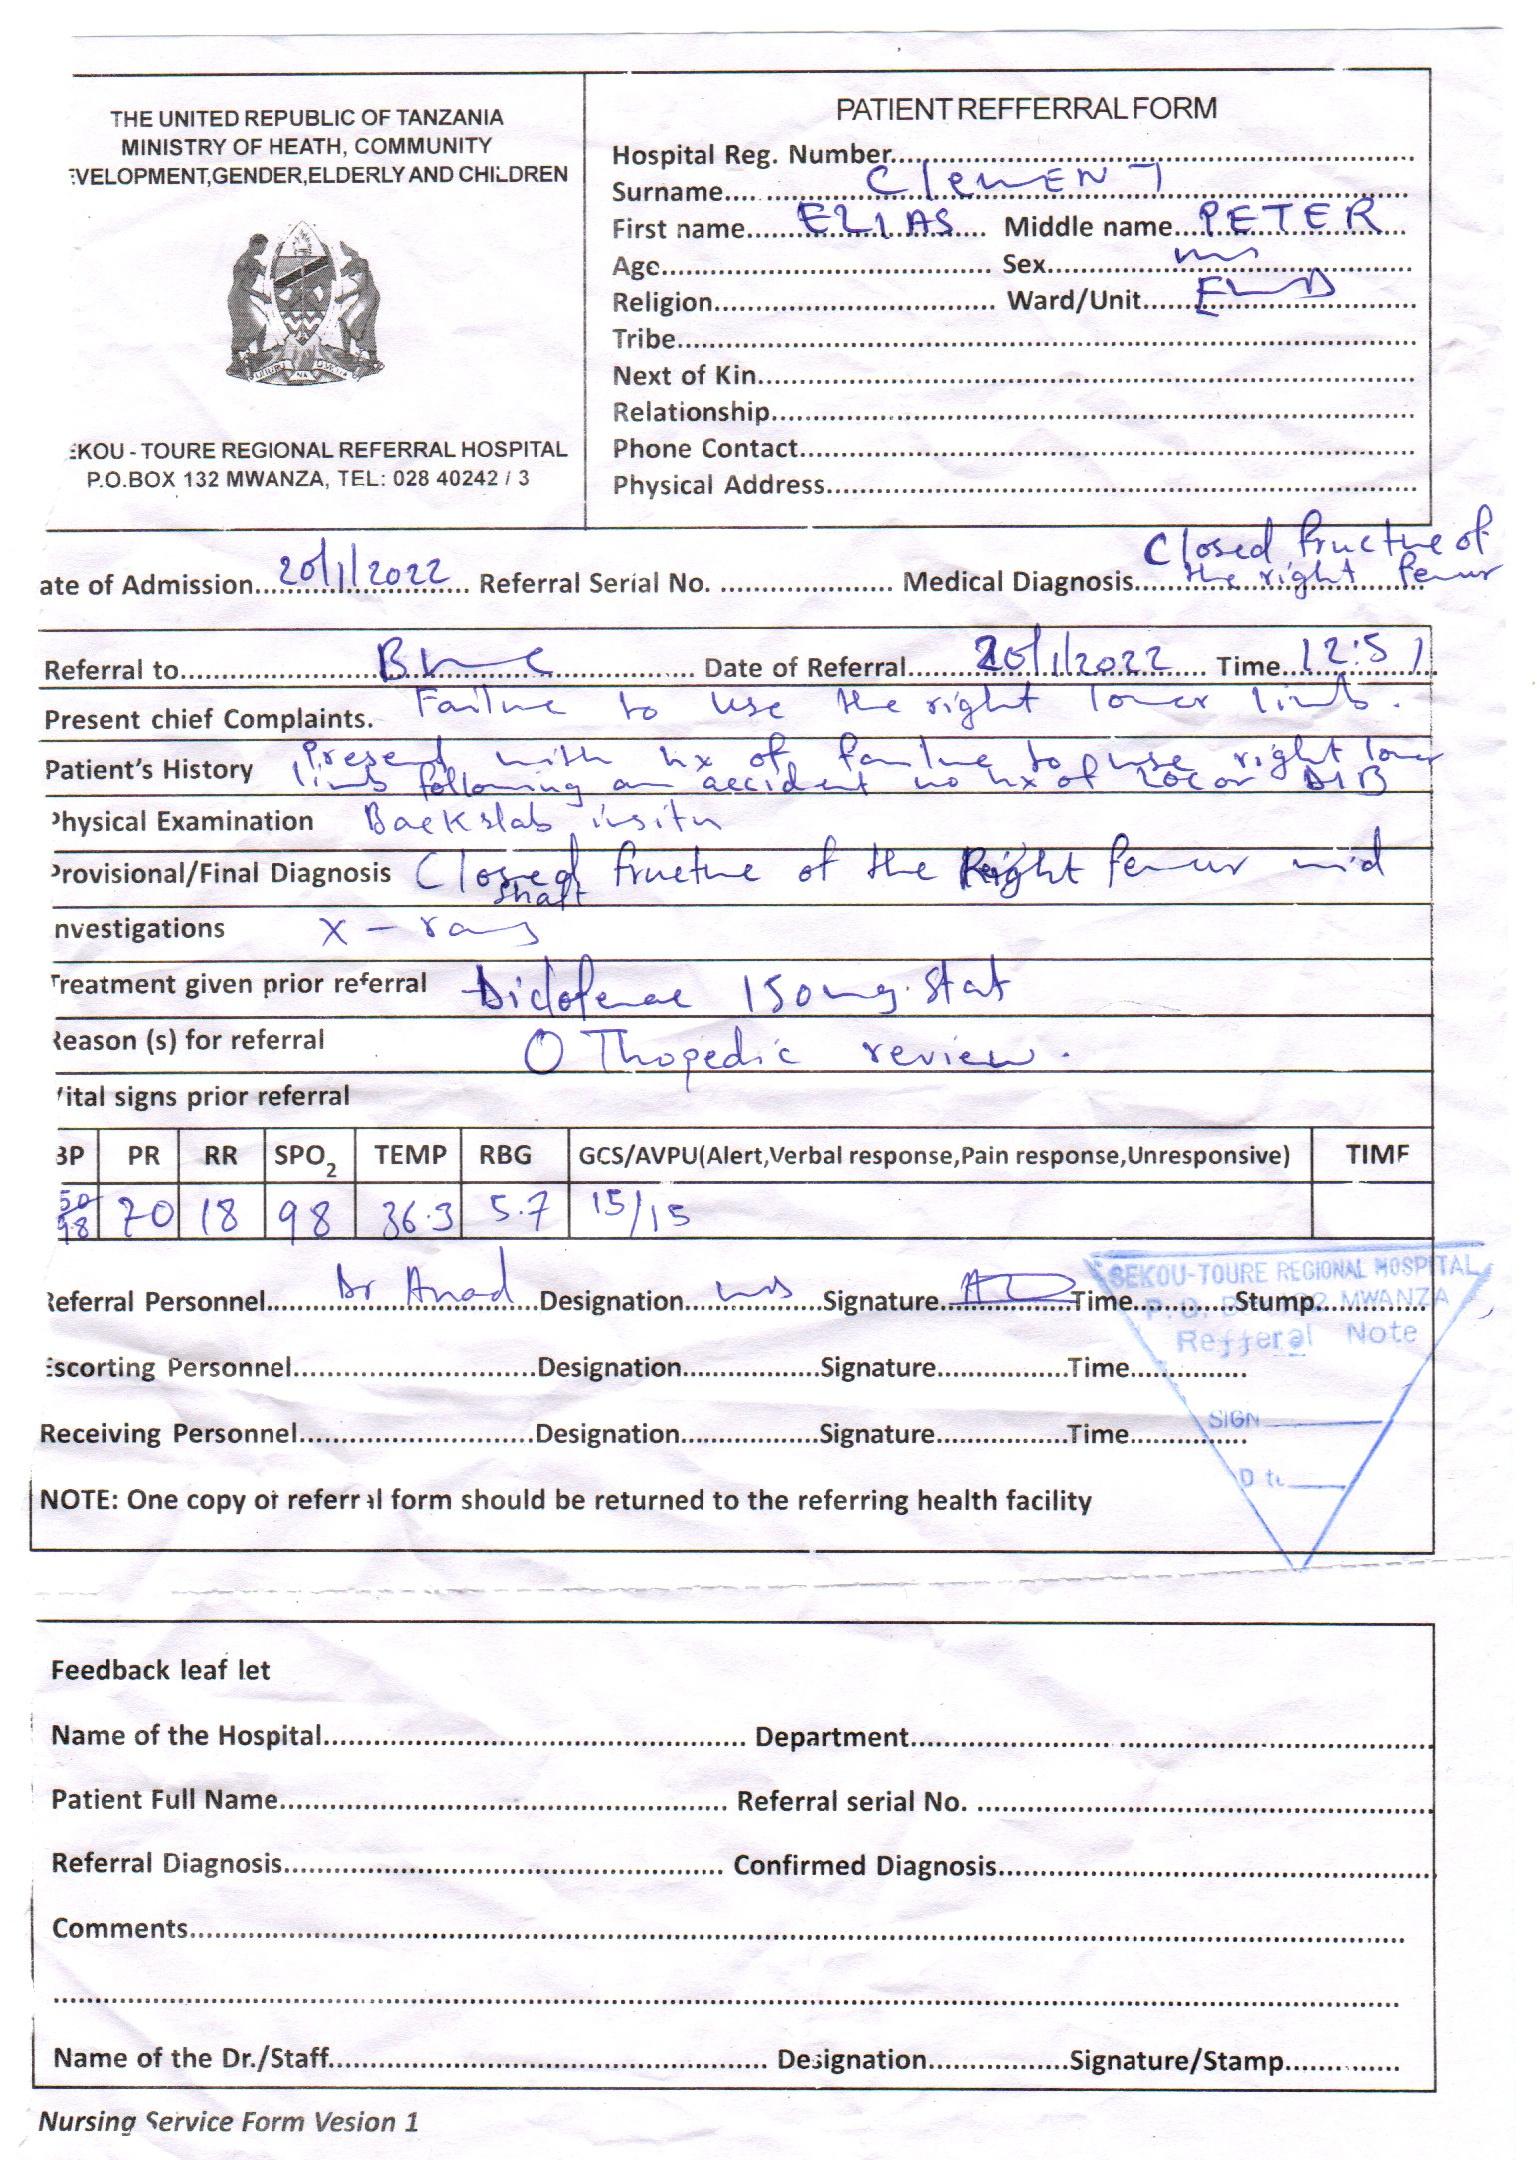 THE UNITED REPUBLIC OF TANZANIA
MINISTRY OF HEATH, COMMUNITY
EVELOPMENT,GENDER,ELDERLY AND CHILDREN
EKOU - TOURE REGIONAL REFERRAL HOSPITAL
P.O.BOX 132 MWANZA, TEL: 028 40242 / 3
PATIENT REFFERRAL FORM
Hospital Reg. Number
Surname Clement
First name ELIAS Middle name PETER
Age Sex
Religion Ward/Unit
Tribe
Next of Kin
Relationship
Phone Contact
Physical Address
ate of Admission 20/1/2022 Referral Serial No. Medical Diagnosis Closed fructue of
the right femur
Referral to Date of Referral 20/1/2022 Time 12:51
Present chief Complaints. Failure to use the right lower limb.
Patient's History Present with hx of failure to use right lower
limb following an accident no hx of LOC or DIB
Physical Examination Backslab insitu
Provisional/Final Diagnosis Closed fructue of the Right femur mid
shaft
nvestigations X-ray
Treatment given prior referral Diclofenac 150mg stat
Reason (s) for referral OThopedic review.
Vital signs prior referral
BP PR RR SPO2 TEMP RBG GCS/AVPU(Alert,Verbal response,Pain response,Unresponsive) TIME
70 18 98 36.3 5.7 15/15
Referral Personnel Dr Designation Signature Time Stump
SEKOU-TOURE REGIONAL HOSPITAL
P.O. MWANZA
Refferal Note
SIGN
Escorting Personnel Designation Signature Time
Receiving Personnel Designation Signature Time
NOTE: One copy of referral form should be returned to the referring health facility
Feedback leaf let
Name of the Hospital Department
Patient Full Name Referral serial No.
Referral Diagnosis Confirmed Diagnosis
Comments
Name of the Dr./Staff Designation Signature/Stamp
Nursing Service Form Vesion 1